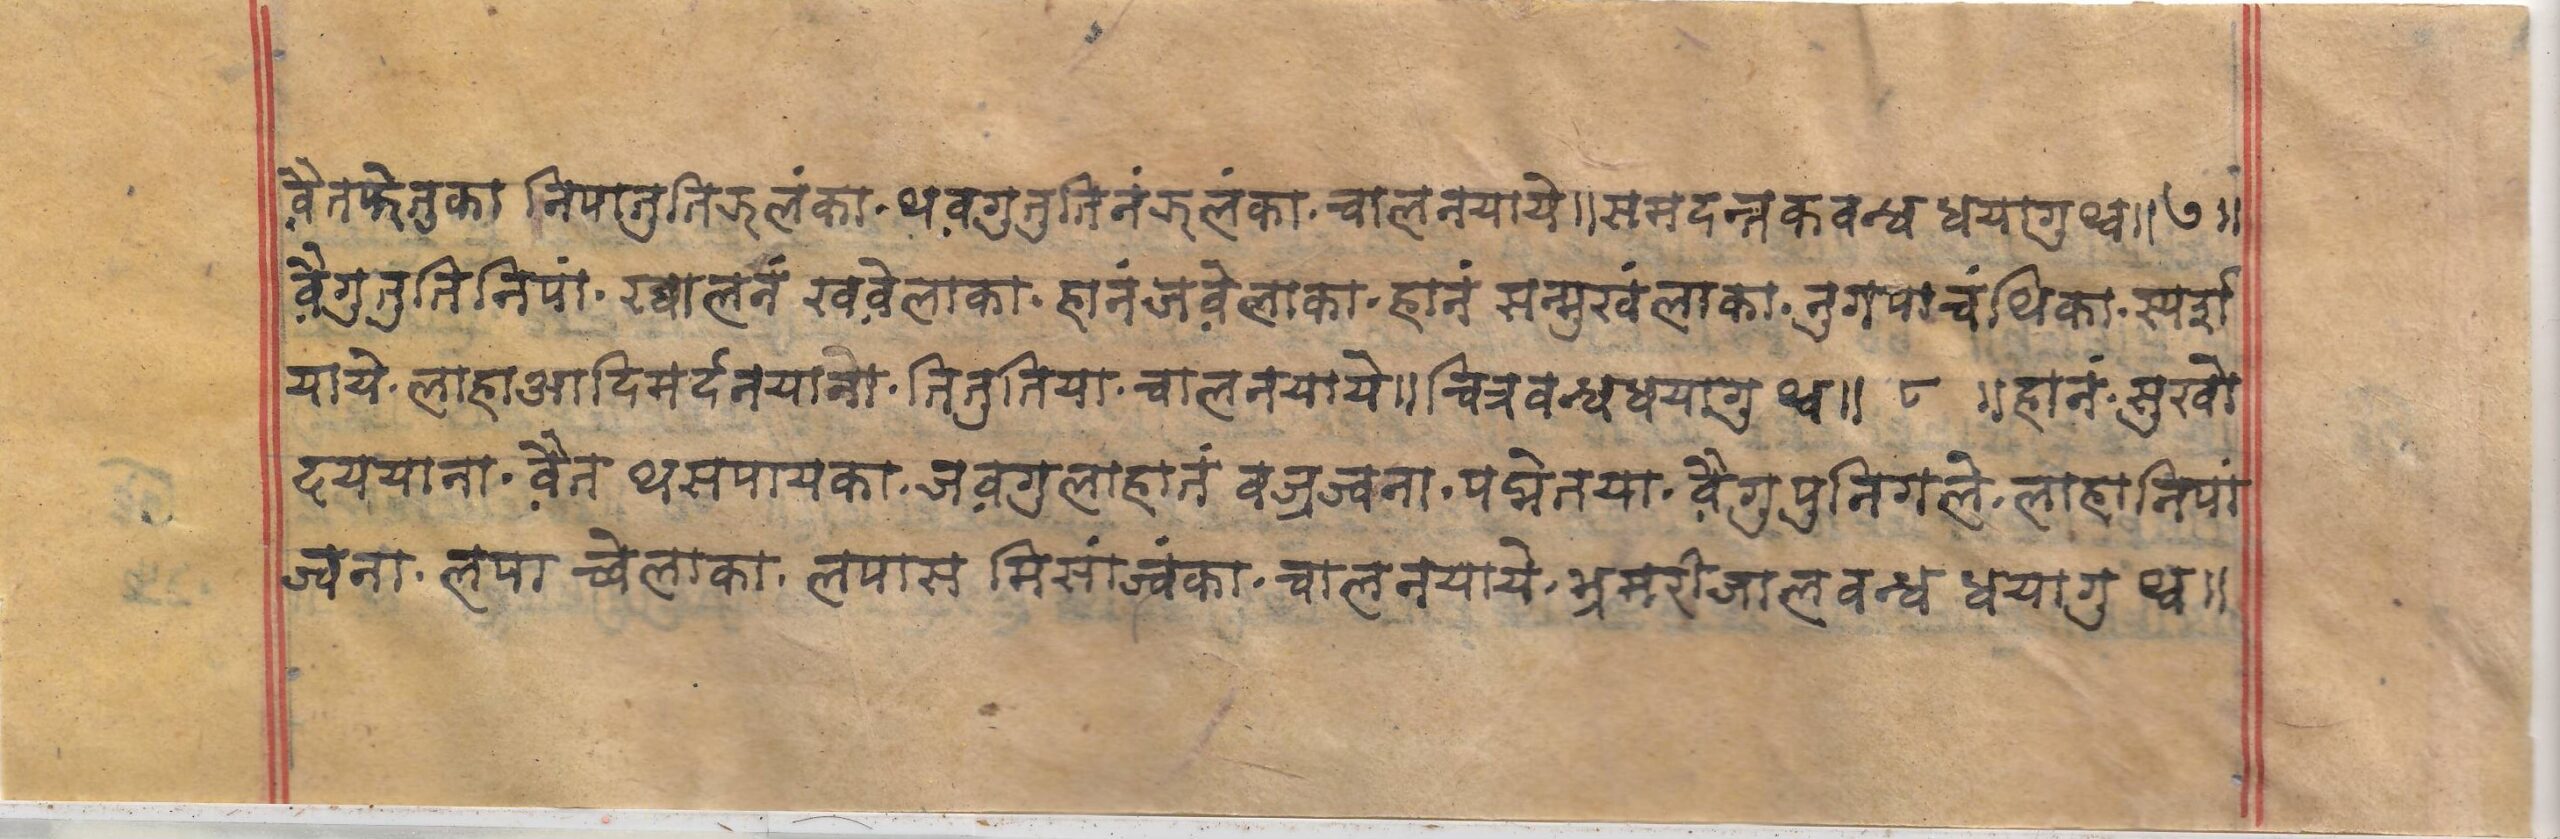 वै़तफेतुका निपातुतिऋलंका·थव़गुतुतिनंऋलंका·चालनयाये॥समदन्तकवन्ध धयागु थ्व॥७॥
वै़गुतुतिनिपां·रव्वालनं रववे़लाका·हानंजवे़लाका·हानं सन्मुखंलाका·नुगपाचंथिका·स्पर्श
याये·लाहाआदिमर्दनयानो·तितुतिया·चालनयाये॥चित्रवन्धधयागु थ्व॥ ८ ॥हानं·सुखो
दययाना·वै़त थसपायका·जव़गुलाहातं वज्रज्वना·पद्मेतया·वै़गुपुनिगले·लाहानिपां
ज्वना·लपा च्वेलाका·लपास मिसांज्वंका·चालनयाये·भ्रमरीजालवन्ध धयागु थ्व॥